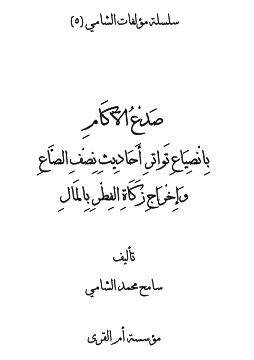 سلسلة مؤلفات الشامي (٥)
صَدْعُ الآكَامِ
بِانْصِيَاعِ تَوَاتُرِ أَحَادِيثِ نِصْفِ الصَّاعِ
وَإِخْرَاجِ زَكَاةِ الفِطْرِ بِالمَالِ
تأليف
سامح محمد الشامي
مؤسسة أم القرى